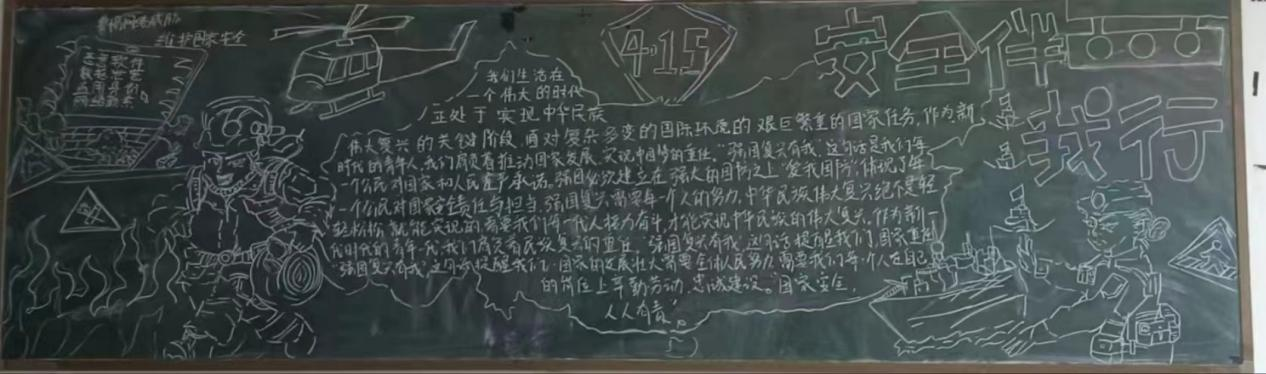 警惕网恋威胁
维护国家安全
恶意软件
数据
网络
4·15
安全伴
我行
我们生活在
一个伟大的时代
正处于实现中华民族
伟大复兴的关键阶段,面对复杂多变的国际环境的艰巨繁重的国家任务,作为新
时代的青年人,我们肩负着推动国家发展、实现中国梦的重任。"强国复兴有我"这句话是我们每
一个公民对国家和人民庄严承诺。强国必须建立在强大的国防之上"爱我国防"体现了每
一个公民对国家安全责任与担当,强国复兴需要每一个人的努力,中华民族伟大复兴绝不是轻
轻松松就能实现的,需要我们每一代人接力奋斗,才能实现中华民族的伟大复兴。作为新一
代时代的青年,我们肩负着民族复兴的重任"强国复兴有我"这句话提醒我们,国家
"强国复兴有我"这句话提醒我们,国家的发展壮大需要全体人民努力,需要我们每个人在自己
的岗位上辛勤劳动,忠诚建设。国家安全,
人人有责。